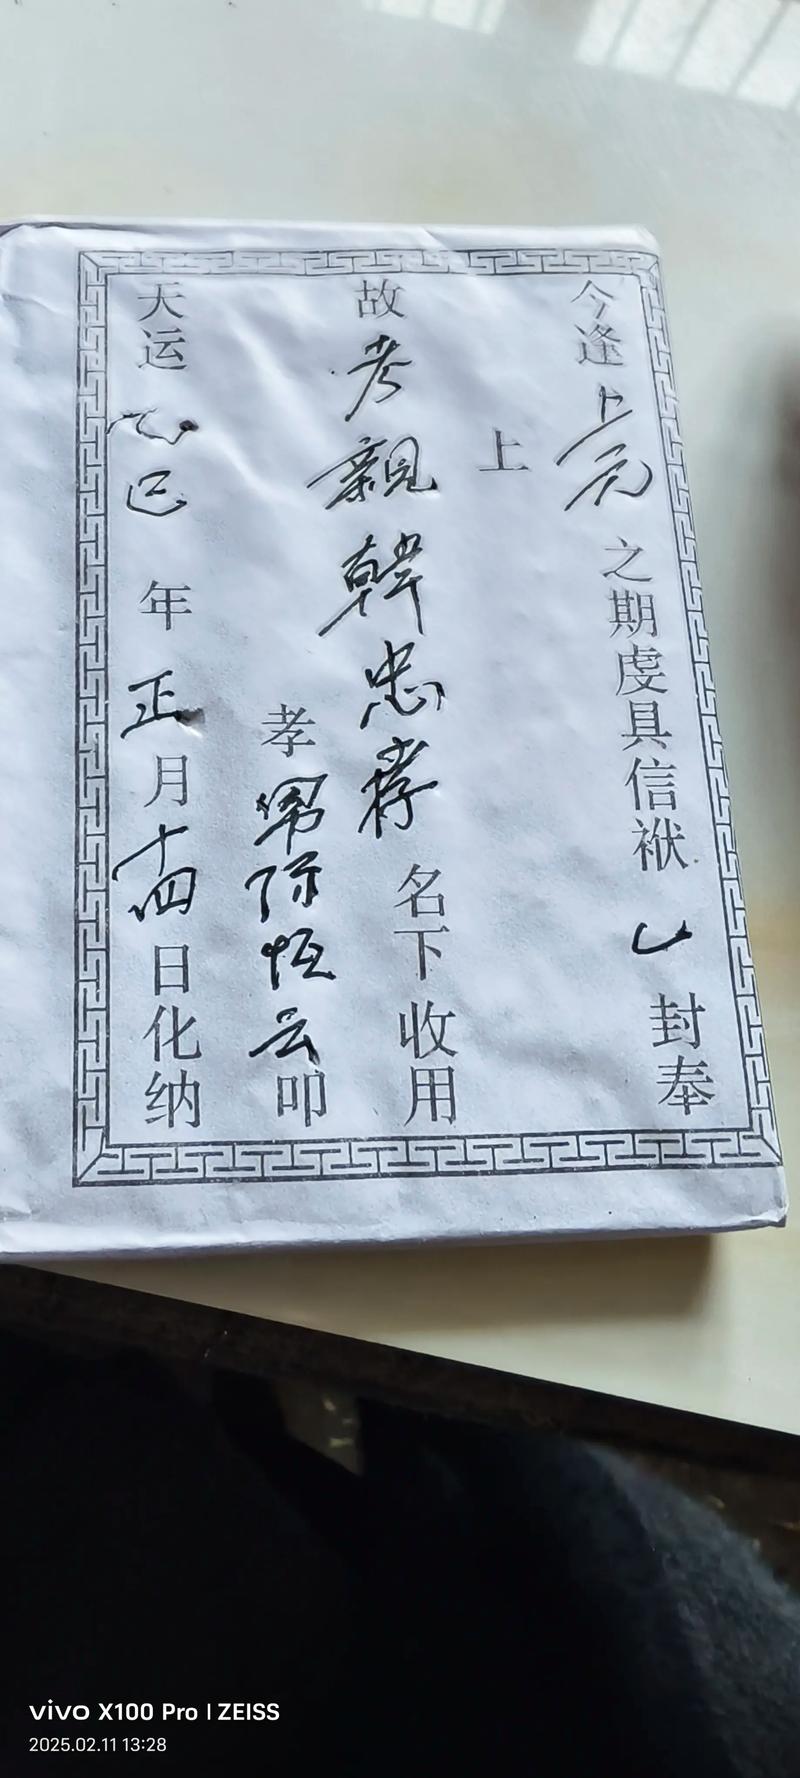 今逢上元之期虔具信袱 封奉
上
故考親韓忠孝名下收用
孝 恒云叩
天运乙巳年正月十四日化纳
vivo X100 Pro | ZEISS
2025.02.11 13:28